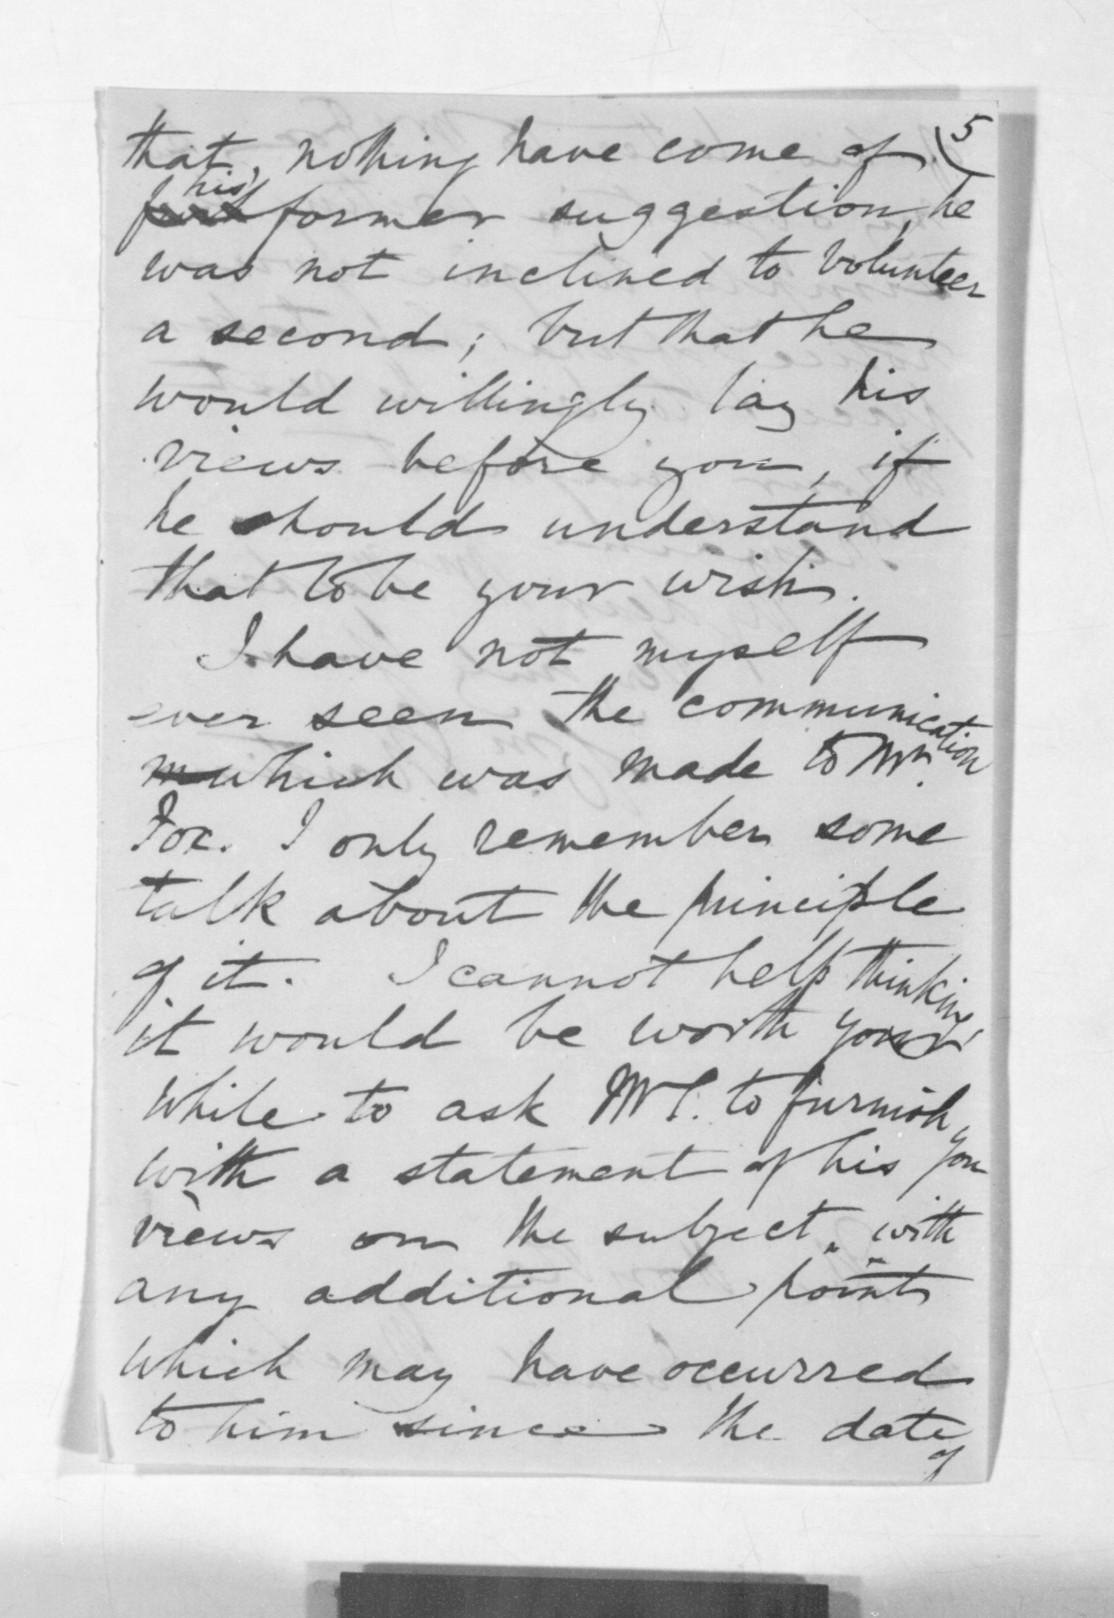 5
that, nothing have come of
his former suggestion, he
was not inclined to volunteer
a second; but that he
would willingly lay his
views before you, if
he should understand
that to be your wish.
I have not myself
ever seen the communication
which was made to Mr.
Fox. I only remember some
talk about the principle
of it. I cannot help thinking
it would be worth your
while to ask Mr T. to furnish you
with a statement of his
views on the subject, with
any additional points
which may have occurred
to him since the date
of